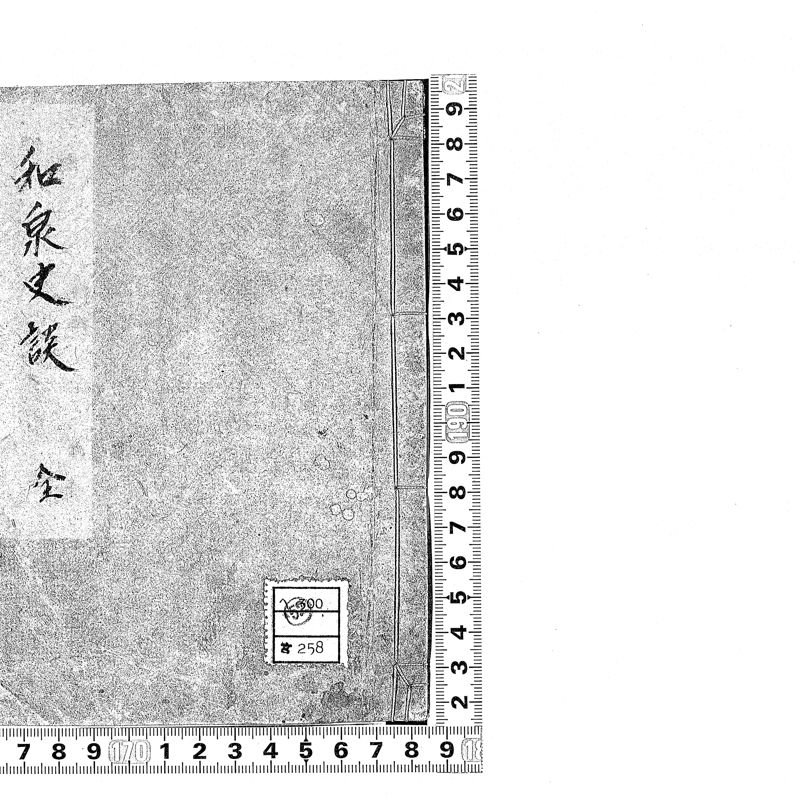 和泉史談 全
300
258
21
9
8
7
6
5
4
3
2
1
190
9
8
7
6
5
4
3
2
7 8 9 170 1 2 3 4 5 6 7 8 9